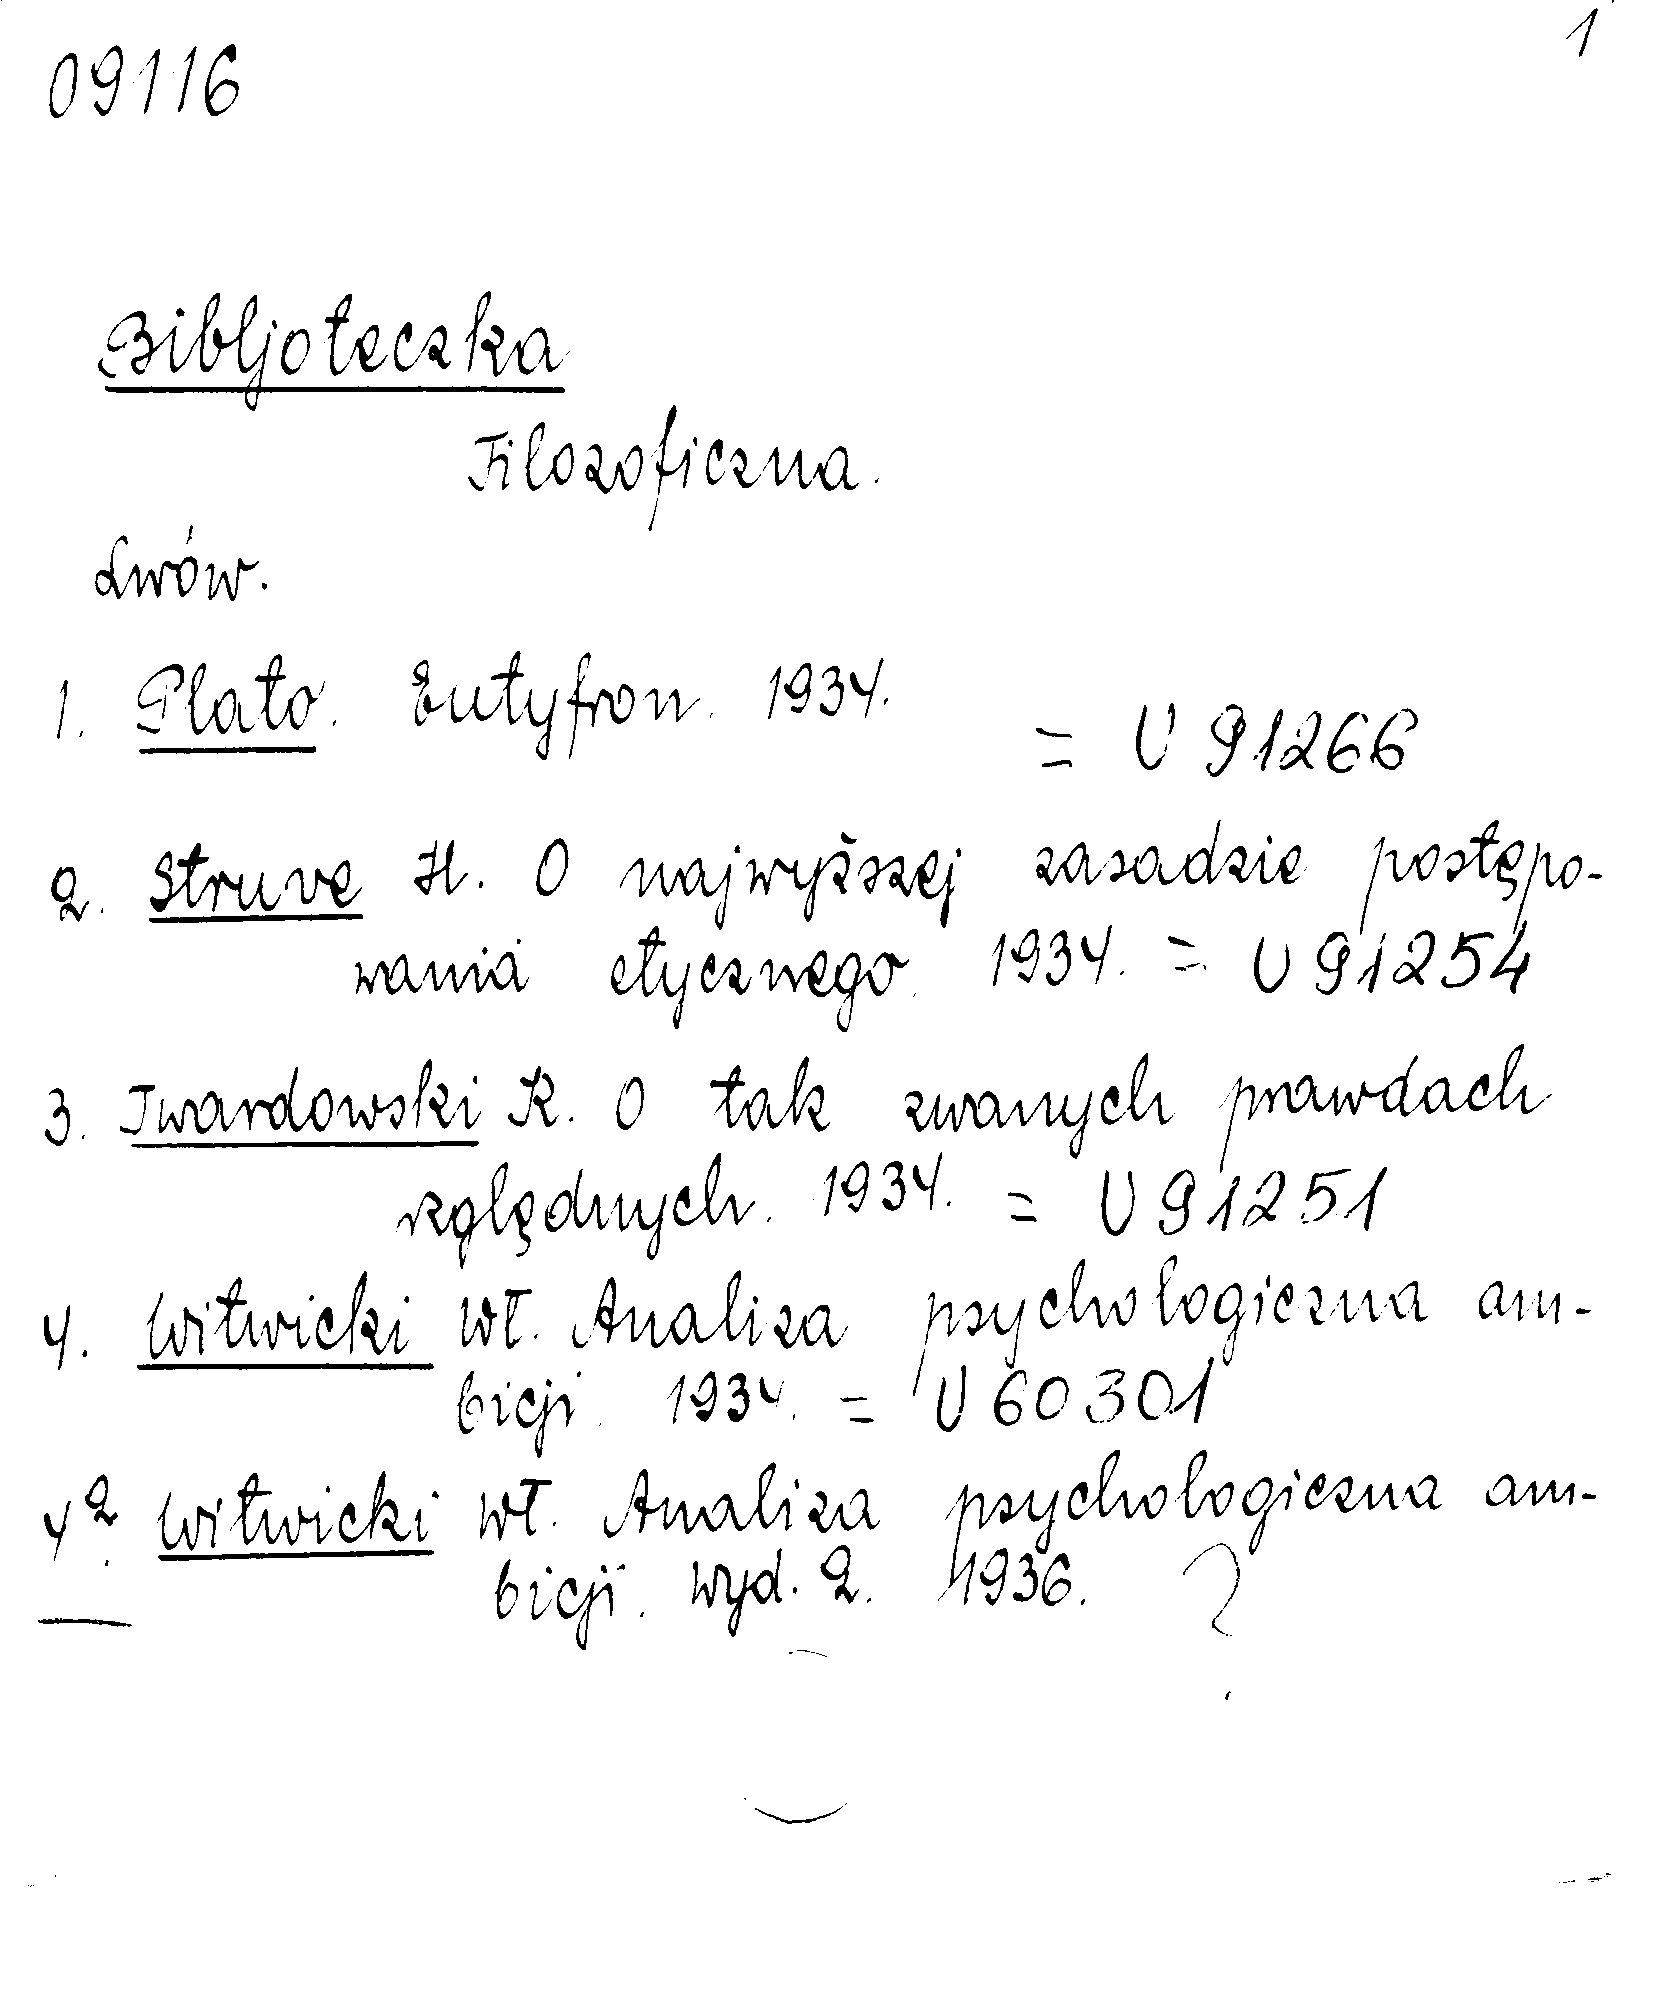 1
09116
Bibljoteczka
Filozoficzna.
Lwów.
1. Plato. Eutyfron. 1934.
= U 91266
2. Struve H. O najwyższej zasadzie postępo-
wania etycznego. 1934. = U 91254
3. Twardowski K. O tak zwanych prawdach
względnych. 1934. = U 91251
4. Witwicki Wł. Analiza psychologiczna am-
bicji. 1934. = U 60301
4². Witwicki Wł. Analiza psychologiczna am-
bicji. Wyd. 2. 1936. ?